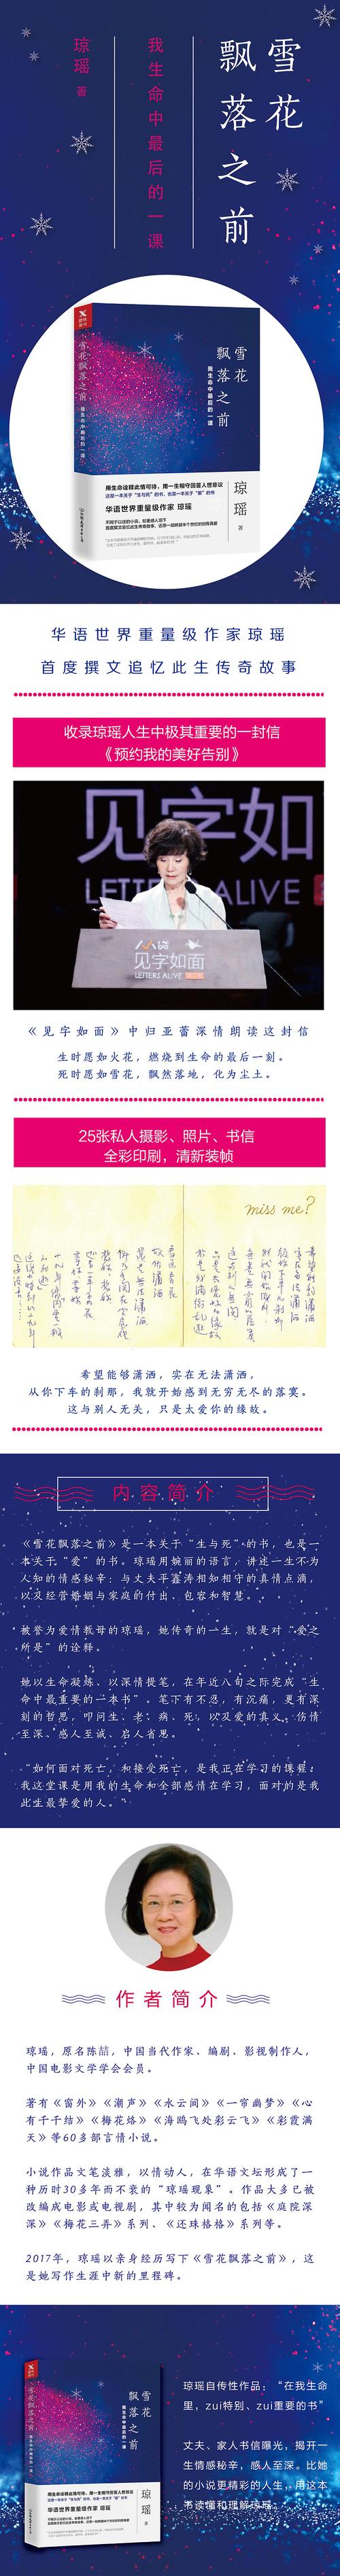 雪花
飘落之前
我生命中最后的一课
琼瑶 著
雪花
飘落之前
我生命中最后的一课
雪花飘落之前
我生命中最后的一课
用生命诠释此情可待，用一生相守回答人世意议
这是一本关于“生与死”的书，也是一本关于“爱”的书
华语世界重量级作家 琼瑶
琼瑶
著
华语世界重量级作家琼瑶
首度撰文追忆此生传奇故事
收录琼瑶人生中极其重要的一封信
《预约我的美好告别》
见字如
LETTERS ALIVE
见字如面
LETTERS ALIVE
《见字如面》中归亚蕾深情朗读这封信
生时愿如火花，燃烧到生命的最后一刻。
死时愿如雪花，飘然落地，化为尘土。
25张私人摄影、照片、书信
全彩印刷，清新装帧
miss me?
希望能够潇洒，实在无法潇洒，
从你下车的刹那，我就开始感到无穷无尽的落寞。
这与别人无关，只是太爱你的缘故。
内容简介
《雪花飘落之前》是一本关于“生与死”的书，也是一
本关于“爱”的书。琼瑶用婉丽的语言，讲述一生不为
人知的情感秘辛：与丈夫平鑫涛相知相守的真情点滴，
以及经营婚姻与家庭的付出、包容和智慧。
被誉为爱情教母的琼瑶，她传奇的一生，就是对“爱之
所是”的诠释。
她以生命凝炼、以深情提笔，在年近八旬之际完成“生
命中最重要的一本书”。笔下有不忍，有沉痛，更有深
刻的哲思，叩问生、老、病、死，以及爱的真义。伤情
至深、感人至诚、启人省思。
“如何面对死亡，和接受死亡，是我正在学习的课程；
我这堂课是用我的生命和全部感情在学习，面对的是我
此生最挚爱的人。”
作者简介
琼瑶，原名陈喆，中国当代作家、编剧、影视制作人，
中国电影文学学会会员。
著有《窗外》《潮声》《水云间》《一帘幽梦》《心
有千千结》《梅花烙》《海鸥飞处彩云飞》《彩霞满
天》等60多部言情小说。
小说作品文笔淡雅，以情动人，在华语文坛形成了一
种历时30多年而不衰的“琼瑶现象”。作品大多已被
改编成电影或电视剧，其中较为闻名的包括《庭院深
深》《梅花三弄》系列、《还珠格格》系列等。
2017年，琼瑶以亲身经历写下《雪花飘落之前》，这
是她写作生涯中新的里程碑。
雪花
飘落之前
我生命中最后的一课
雪花飘落之前
华语世界重量级作家 琼瑶
琼瑶
著
琼瑶自传性作品：“在我生命
里，zui特别、zui重要的书”
丈夫、家人书信曝光，揭开一
生情感秘辛，感人至深。比她
的小说更精彩的人生，用这本
书读懂和理解琼瑶。